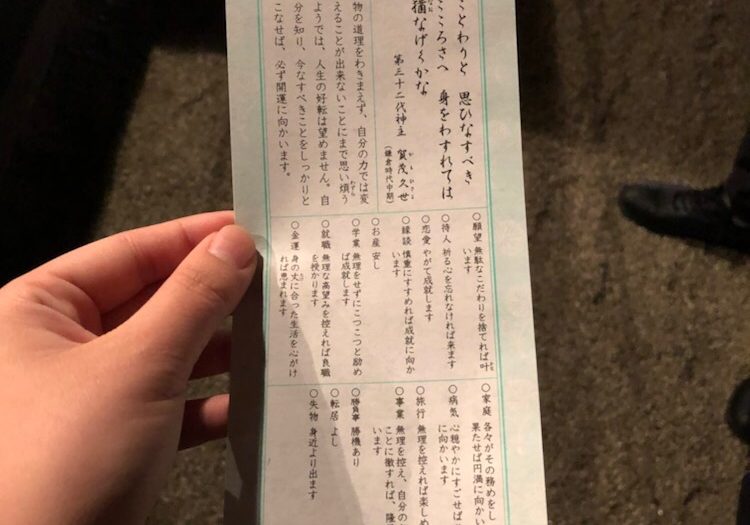 ことわりと 思ひなすべき
こころさへ 身をわすれては
猶なげくかな
第三十二代神主 賀茂久世
かもひさよ
(鎌倉時代中期)
物の道理をわきまえず、自分の力では変
えることが出来ないことにまで思い煩う
わずら
ようでは、人生の好転は望めません。自
分を知り、今なすべきことをしっかりと
こなせば、必ず開運に向かいます。
○願望 無駄なこだわりを捨てれば叶
います
○待人 祈る心を忘れなければ来ます
○恋愛 やがて成就します
○縁談 慎重にすすめれば成就に向か
います
○お産 安し
○学業 無理をせずにこつこつと励め
ば成就します
○就職 無理な高望みを控えれば良職
を授かります
○金運 身の丈に合った生活を心がけ
れば恵まれます
○家庭 各々がその務めをし
果たせば円満に向かい
○病気 心穏やかにすごせば
に向かいます
○旅行 無理を控えれば楽しめ
○事業 無理を控え、自分の
ことに徹すれば、隆
います
○勝負事 勝機あり
○転居 よし
○失物 身近より出ます